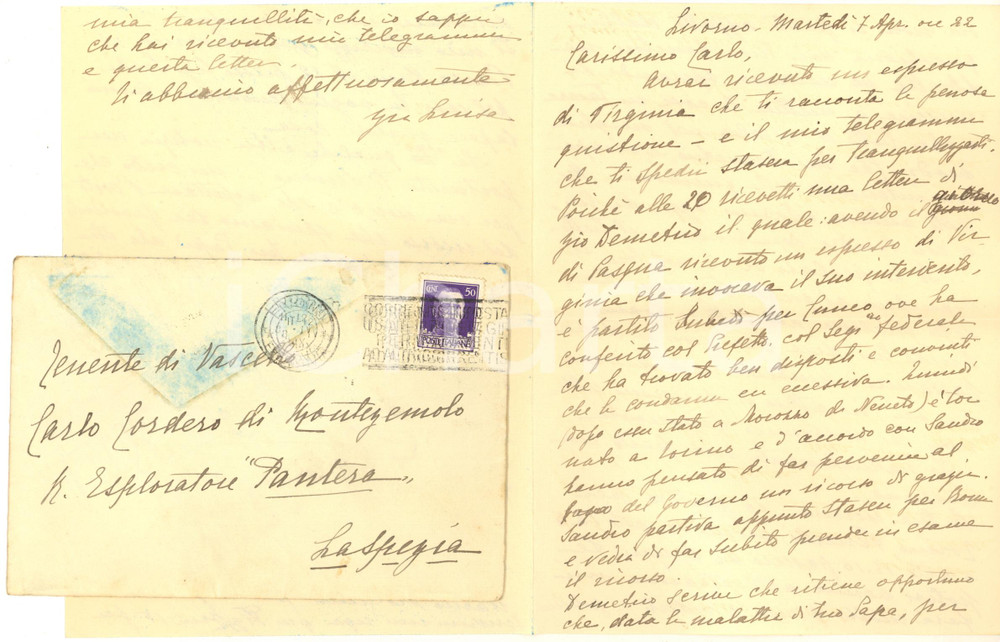 Livorno - Martedì 7 Apr. ore 22
Carissimo Carlo,
Avrai ricevuto un espresso
di Virginia che ti racconta la penosa
quistione - e il mio telegramma
che ti spedii stasera per tranquillizzarti.
Poichè alle 20 ricevetti una lettera di
zio Demetrio il quale: avendo il
di Pasqua ricevuto un espresso di Vir-
ginia che invocava il suo intervento,
è partito subito per Cuneo ove ha
conferito col Prefetto, col Segr. federale
che ha trovato ben disposti e convinti
che la condanna era eccessiva. Quindi
(dopo esser stato a
nato a Torino e d'accordo con Sandro
hanno pensato di far pervenire al
del Governo un ricorso di grazia.
Sandro partiva appunto stasera per Roma
e vedrà di far subito prender in esame
il ricorso.
Demetrio scrive che ritiene opportuno
che, data la malattia di tuo Papà, per
mia tranquillità, che io sappia
che hai ricevuto mio telegramma
e questa lettera.
Ti abbraccio affettuosamente
zia Luisa
Tenente di Vascello
Carlo Cordero di Montezemolo
R. Esploratore "Pantera"
La Spezia
50
POSTE ITALIANE